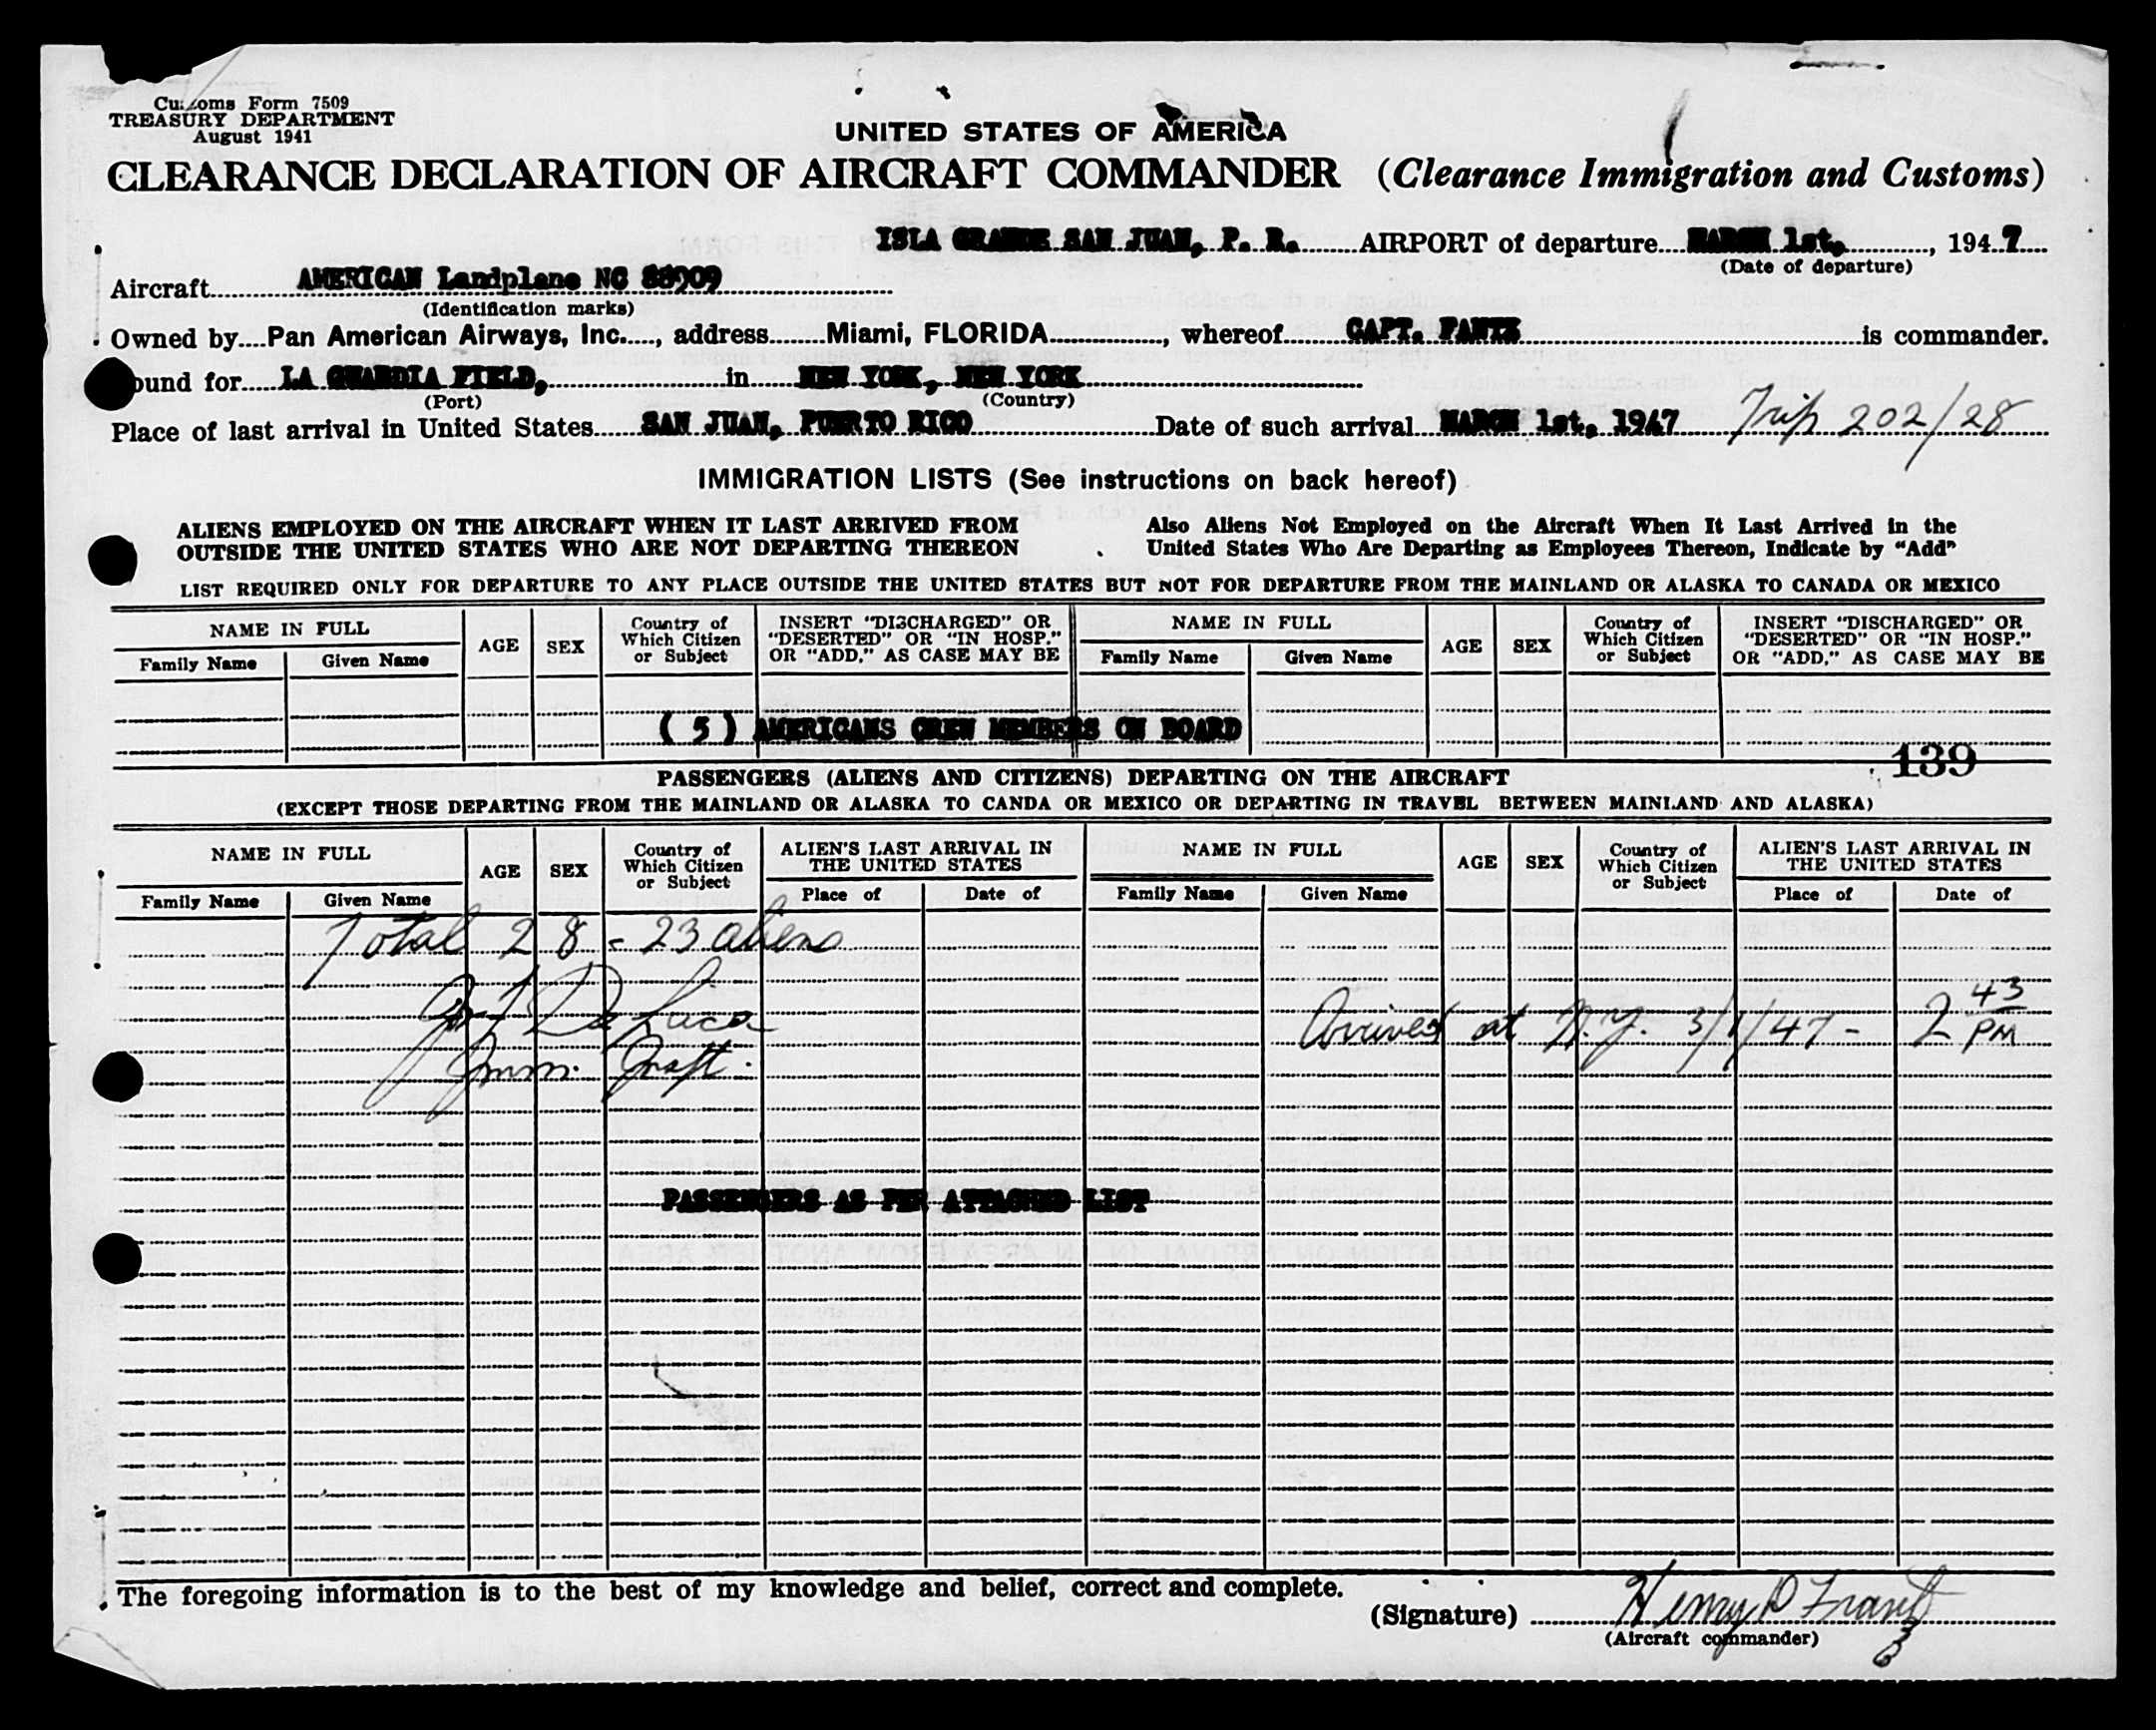 Customs Form 7509
TREASURY DEPARTMENT
August 1941
UNITED STATES OF AMERICA
CLEARANCE DECLARATION OF AIRCRAFT COMMANDER (Clearance Immigration and Customs)
ISLA GRANDE SAN JUAN, P. R. AIRPORT of departure MARCH 1st, , 1947
(Date of departure)
Aircraft AMERICAN Landplane NC 88909
(Identification marks)
Owned by Pan American Airways, Inc. , address Miami, FLORIDA , whereof CAPT. FANTZ is commander.
Bound for LA GUARDIA FIELD, in NEW YORK, NEW YORK
(Port) (Country)
Place of last arrival in United States SAN JUAN, PUERTO RICO Date of such arrival MARCH 1st, 1947 Trip 202/28
IMMIGRATION LISTS (See instructions on back hereof)
ALIENS EMPLOYED ON THE AIRCRAFT WHEN IT LAST ARRIVED FROM OUTSIDE THE UNITED STATES WHO ARE NOT DEPARTING THEREON
Also Aliens Not Employed on the Aircraft When It Last Arrived in the United States Who Are Departing as Employees Thereon, Indicate by "Add"
LIST REQUIRED ONLY FOR DEPARTURE TO ANY PLACE OUTSIDE THE UNITED STATES BUT NOT FOR DEPARTURE FROM THE MAINLAND OR ALASKA TO CANADA OR MEXICO
NAME IN FULL AGE SEX Country of Which Citizen or Subject INSERT "DISCHARGED" OR "DESERTED" OR "IN HOSP." OR "ADD," AS CASE MAY BE NAME IN FULL AGE SEX Country of Which Citizen or Subject INSERT "DISCHARGED" OR "DESERTED" OR "IN HOSP." OR "ADD," AS CASE MAY BE
Family Name Given Name Family Name Given Name
( 5 ) AMERICANS CREW MEMBERS ON BOARD
139
PASSENGERS (ALIENS AND CITIZENS) DEPARTING ON THE AIRCRAFT
(EXCEPT THOSE DEPARTING FROM THE MAINLAND OR ALASKA TO CANDA OR MEXICO OR DEPARTING IN TRAVEL BETWEEN MAINLAND AND ALASKA)
NAME IN FULL AGE SEX Country of Which Citizen or Subject ALIEN'S LAST ARRIVAL IN THE UNITED STATES NAME IN FULL AGE SEX Country of Which Citizen or Subject ALIEN'S LAST ARRIVAL IN THE UNITED STATES
Family Name Given Name Place of Date of Family Name Given Name Place of Date of
Total 28 - 23 aliens
De Luca
Imm. Insp.
Arrived at N.Y. 3/1/47 - 2 43 PM
PASSENGERS AS PER ATTACHED LIST
The foregoing information is to the best of my knowledge and belief, correct and complete.
(Signature) Henry D Frantz
(Aircraft commander)